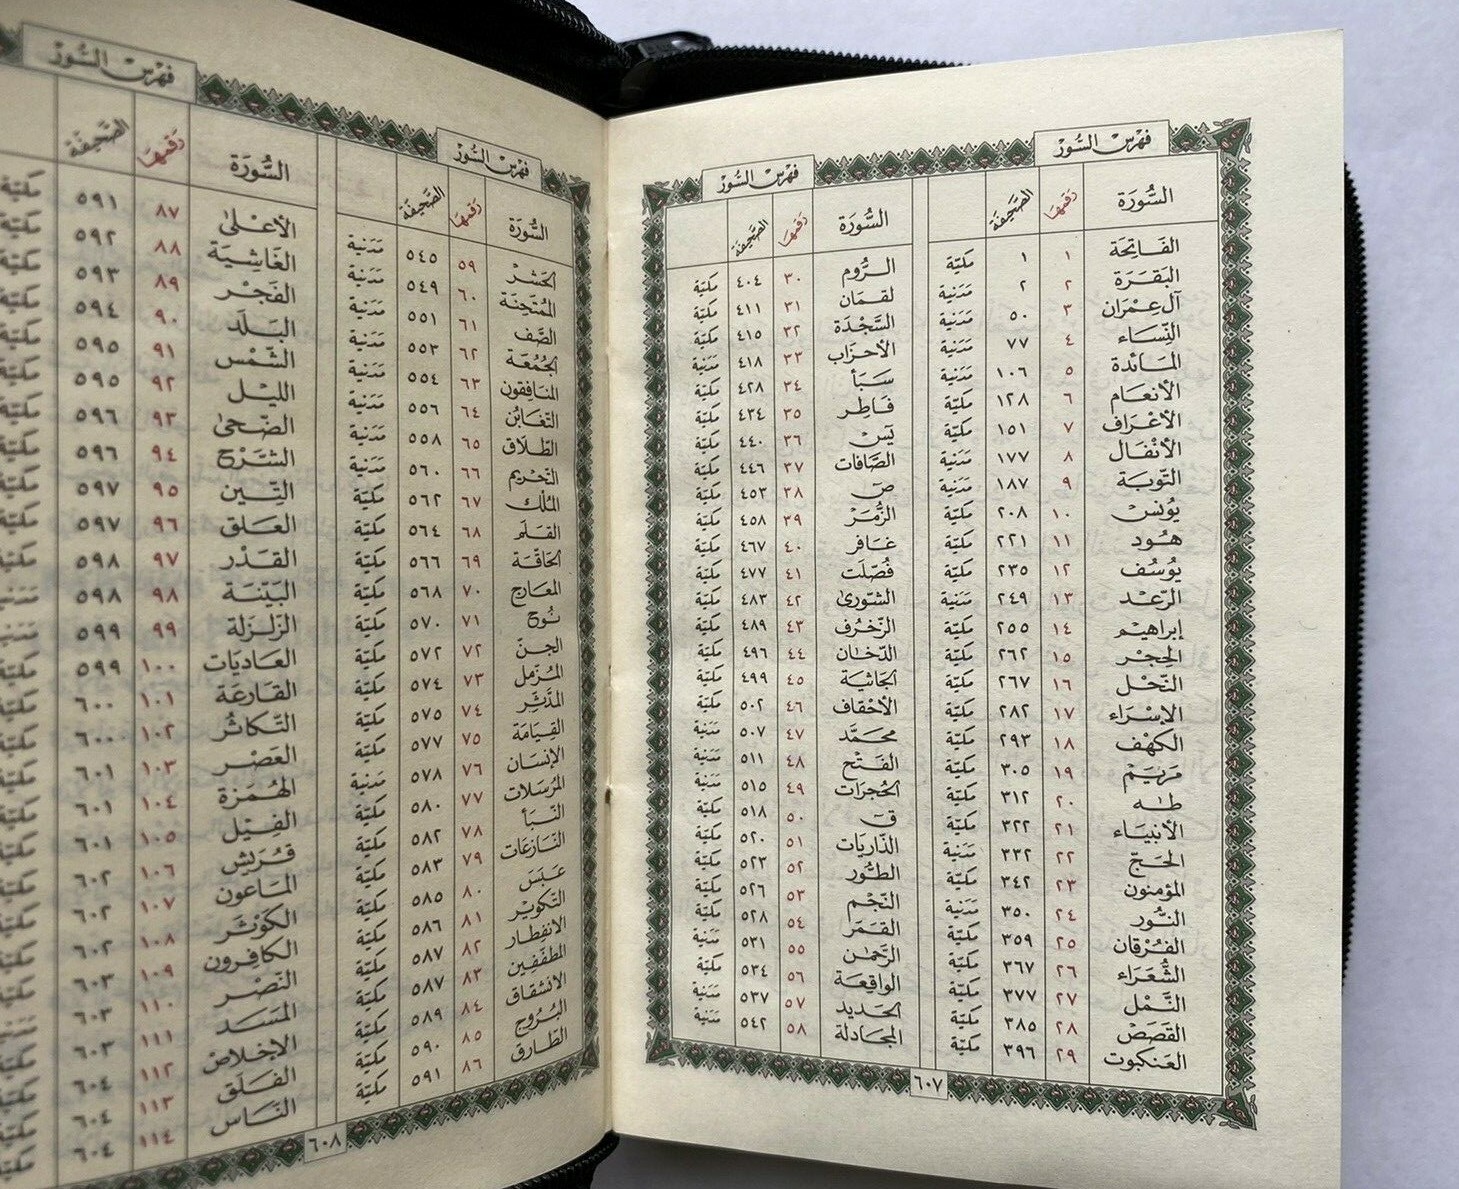 فهرس السور
السورة رقمها الصحيفة
الفاتحة ١ ١ مكية
البقرة ٢ ٢ مدنية
آل عمران ٣ ٥٠ مدنية
النساء ٤ ٧٧ مدنية
المائدة ٥ ١٠٦ مدنية
الأنعام ٦ ١٢٨ مكية
الأعراف ٧ ١٥١ مكية
الأنفال ٨ ١٧٧ مدنية
التوبة ٩ ١٨٧ مدنية
يونس ١٠ ٢٠٨ مكية
هود ١١ ٢٢١ مكية
يوسف ١٢ ٢٣٥ مكية
الرعد ١٣ ٢٤٩ مدنية
إبراهيم ١٤ ٢٥٥ مكية
الحجر ١٥ ٢٦٢ مكية
النحل ١٦ ٢٦٧ مكية
الإسراء ١٧ ٢٨٢ مكية
الكهف ١٨ ٢٩٣ مكية
مريم ١٩ ٣٠٥ مكية
طه ٢٠ ٣١٢ مكية
الأنبياء ٢١ ٣٢٢ مكية
الحج ٢٢ ٣٣٢ مدنية
المؤمنون ٢٣ ٣٤٢ مكية
النور ٢٤ ٣٥٠ مدنية
الفرقان ٢٥ ٣٥٩ مكية
الشعراء ٢٦ ٣٦٧ مكية
النمل ٢٧ ٣٧٧ مكية
القصص ٢٨ ٣٨٥ مكية
العنكبوت ٢٩ ٣٩٦ مكية
فهرس السور
السورة رقمها الصحيفة
الروم ٣٠ ٤٠٤ مكية
لقمان ٣١ ٤١١ مكية
السجدة ٣٢ ٤١٥ مكية
الأحزاب ٣٣ ٤١٨ مدنية
سبأ ٣٤ ٤٢٨ مكية
فاطر ٣٥ ٤٣٤ مكية
يس ٣٦ ٤٤٠ مكية
الصافات ٣٧ ٤٤٦ مكية
ص ٣٨ ٤٥٣ مكية
الزمر ٣٩ ٤٥٨ مكية
غافر ٤٠ ٤٦٧ مكية
فصلت ٤١ ٤٧٧ مكية
الشورى ٤٢ ٤٨٣ مكية
الزخرف ٤٣ ٤٨٩ مكية
الدخان ٤٤ ٤٩٦ مكية
الجاثية ٤٥ ٤٩٩ مكية
الأحقاف ٤٦ ٥٠٢ مكية
محمد ٤٧ ٥٠٧ مدنية
الفتح ٤٨ ٥١١ مدنية
الحجرات ٤٩ ٥١٥ مدنية
ق ٥٠ ٥١٨ مكية
الذاريات ٥١ ٥٢٠ مكية
الطور ٥٢ ٥٢٣ مكية
النجم ٥٣ ٥٢٦ مكية
القمر ٥٤ ٥٢٨ مكية
الرحمن ٥٥ ٥٣١ مدنية
الواقعة ٥٦ ٥٣٤ مكية
الحديد ٥٧ ٥٣٧ مدنية
المجادلة ٥٨ ٥٤٢ مدنية
٦٠٧
فهرس السور
السورة رقمها الصحيفة
الحشر ٥٩ ٥٤٥ مدنية
الممتحنة ٦٠ ٥٤٩ مدنية
الصف ٦١ ٥٥١ مدنية
الجمعة ٦٢ ٥٥٣ مدنية
المنافقون ٦٣ ٥٥٤ مدنية
التغابن ٦٤ ٥٥٦ مدنية
الطلاق ٦٥ ٥٥٨ مدنية
التحريم ٦٦ ٥٦٠ مدنية
الملك ٦٧ ٥٦٢ مكية
القلم ٦٨ ٥٦٤ مكية
الحاقة ٦٩ ٥٦٦ مكية
المعارج ٧٠ ٥٦٨ مكية
نوح ٧١ ٥٧٠ مكية
الجن ٧٢ ٥٧٢ مكية
المزمل ٧٣ ٥٧٤ مكية
المدثر ٧٤ ٥٧٥ مكية
القيامة ٧٥ ٥٧٧ مكية
الإنسان ٧٦ ٥٧٨ مدنية
المرسلات ٧٧ ٥٨٠ مكية
النبأ ٧٨ ٥٨٢ مكية
النازعات ٧٩ ٥٨٣ مكية
عبس ٨٠ ٥٨٥ مكية
التكوير ٨١ ٥٨٦ مكية
الانفطار ٨٢ ٥٨٧ مكية
المطففين ٨٣ ٥٨٧ مكية
الانشقاق ٨٤ ٥٨٩ مكية
البروج ٨٥ ٥٩٠ مكية
الطارق ٨٦ ٥٩١ مكية
فهرس السور
السورة رقمها الصحيفة
الأعلى ٨٧ ٥٩١ مكية
الغاشية ٨٨ ٥٩٢ مكية
الفجر ٨٩ ٥٩٣ مكية
البلد ٩٠ ٥٩٤ مكية
الشمس ٩١ ٥٩٥ مكية
الليل ٩٢ ٥٩٥ مكية
الضحى ٩٣ ٥٩٦ مكية
الشرح ٩٤ ٥٩٦ مكية
التين ٩٥ ٥٩٧ مكية
العلق ٩٦ ٥٩٧ مكية
القدر ٩٧ ٥٩٨ مكية
البينة ٩٨ ٥٩٨ مدنية
الزلزلة ٩٩ ٥٩٩ مدنية
العاديات ١٠٠ ٥٩٩ مكية
القارعة ١٠١ ٦٠٠ مكية
التكاثر ١٠٢ ٦٠٠ مكية
العصر ١٠٣ ٦٠١ مكية
الهمزة ١٠٤ ٦٠١ مكية
الفيل ١٠٥ ٦٠١ مكية
قريش ١٠٦ ٦٠٢ مكية
الماعون ١٠٧ ٦٠٢ مكية
الكوثر ١٠٨ ٦٠٢ مكية
الكافرون ١٠٩ ٦٠٣ مكية
النصر ١١٠ ٦٠٣ مدنية
المسد ١١١ ٦٠٣ مكية
الإخلاص ١١٢ ٦٠٤ مكية
الفلق ١١٣ ٦٠٤ مكية
الناس ١١٤ ٦٠٤ مكية
٦٠٨